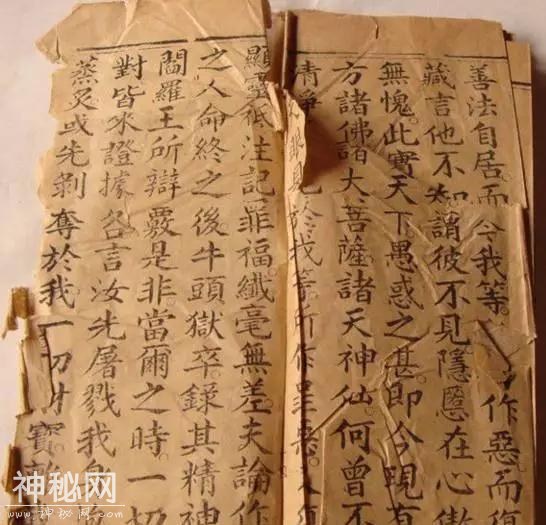 善法自居而今我等作惡而復
藏言他不知謂彼不見隱慝在心慠
無愧此實天下愚惑之甚即今現有
方諸佛諸大菩薩諸天神仙何曾不
清淨眼見於我等所作罪惡
顯靈祇注記罪福纖毫無差夫論作
之人命終之後牛頭獄卒錄其精神
閻羅王所辯覈是非當爾之時一切
對皆來證據各言汝先屠戮我
蒸炙或先剝奪於我一切財寶
神秘网
www.神秘网.com